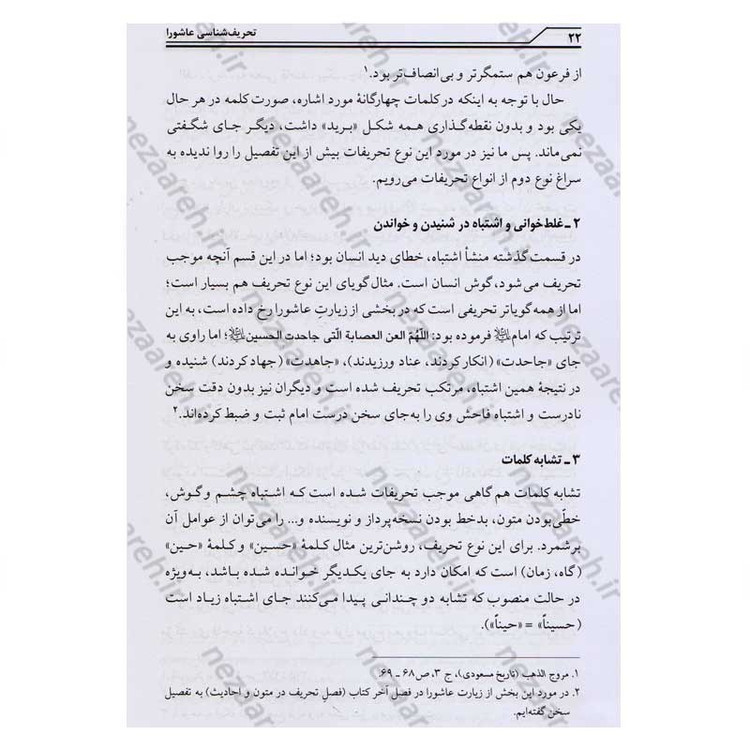 ۲۲ تحریف‌شناسی عاشورا
از فرعون هم ستمگرتر و بی‌انصاف‌تر بود.۱
حال با توجه به اینکه در کلمات چهارگانهٔ مورد اشاره، صورت کلمه در هر حال
یکی بود و بدون نقطه‌گذاری همه شکل «برید» داشت، دیگر جای شگفتی
نمی‌ماند. پس ما نیز در مورد این نوع تحریفات بیش از این تفصیل را روا ندیده به
سراغ نوع دوم از انواع تحریفات می‌رویم.
۲ ـ غلط‌خوانی و اشتباه در شنیدن و خواندن
در قسمت گذشته منشأ اشتباه، خطای دید انسان بود؛ اما در این قسم آنچه موجب
تحریف می‌شود، گوش انسان است. مثال گویای این نوع تحریف هم بسیار است؛
اما از همه گویاتر تحریفی است که در بخشی از زیارتِ عاشورا رخ داده است، به این
ترتیب که امام فرموده بود: اللّهُمّ العن العصابة الّتی جاحدت الحسین؛ اما راوی به
جای «جاحدت» (انکار کردند، عناد ورزیدند)، «جاهدت» (جهاد کردند) شنیده و
در نتیجهٔ همین اشتباه، مرتکب تحریف شده است و دیگران نیز بدون دقت سخن
نادرست و اشتباه فاحش وی را به‌جای سخن درست امام ثبت و ضبط کرده‌اند.۲
۳ ـ تشابه کلمات
تشابه کلمات هم گاهی موجب تحریفات شده است که اشتباه چشم و گوش،
خطّی بودن متون، بدخط بودن نسخه‌پرداز و نویسنده و... را می‌توان از عوامل آن
برشمرد. برای این نوع تحریف، روشن‌ترین مثال کلمهٔ «حسین» و کلمهٔ «حین»
(گاه، زمان) است که امکان دارد به جای یکدیگر خوانده شده باشد، به‌ویژه
در حالت منصوب که تشابه دو چندانی پیدا می‌کنند جای اشتباه زیاد است
(حسیناً» = «حیناً»).
۱. مروج الذهب (تاریخ مسعودی)، ج ۳، ص ۶۸ ـ ۶۹.
۲. در مورد این بخش از زیارت عاشورا در فصل آخر کتاب (فصلِ تحریف در متون و احادیث) به تفصیل
سخن گفته‌ایم.
nezaareh.ir